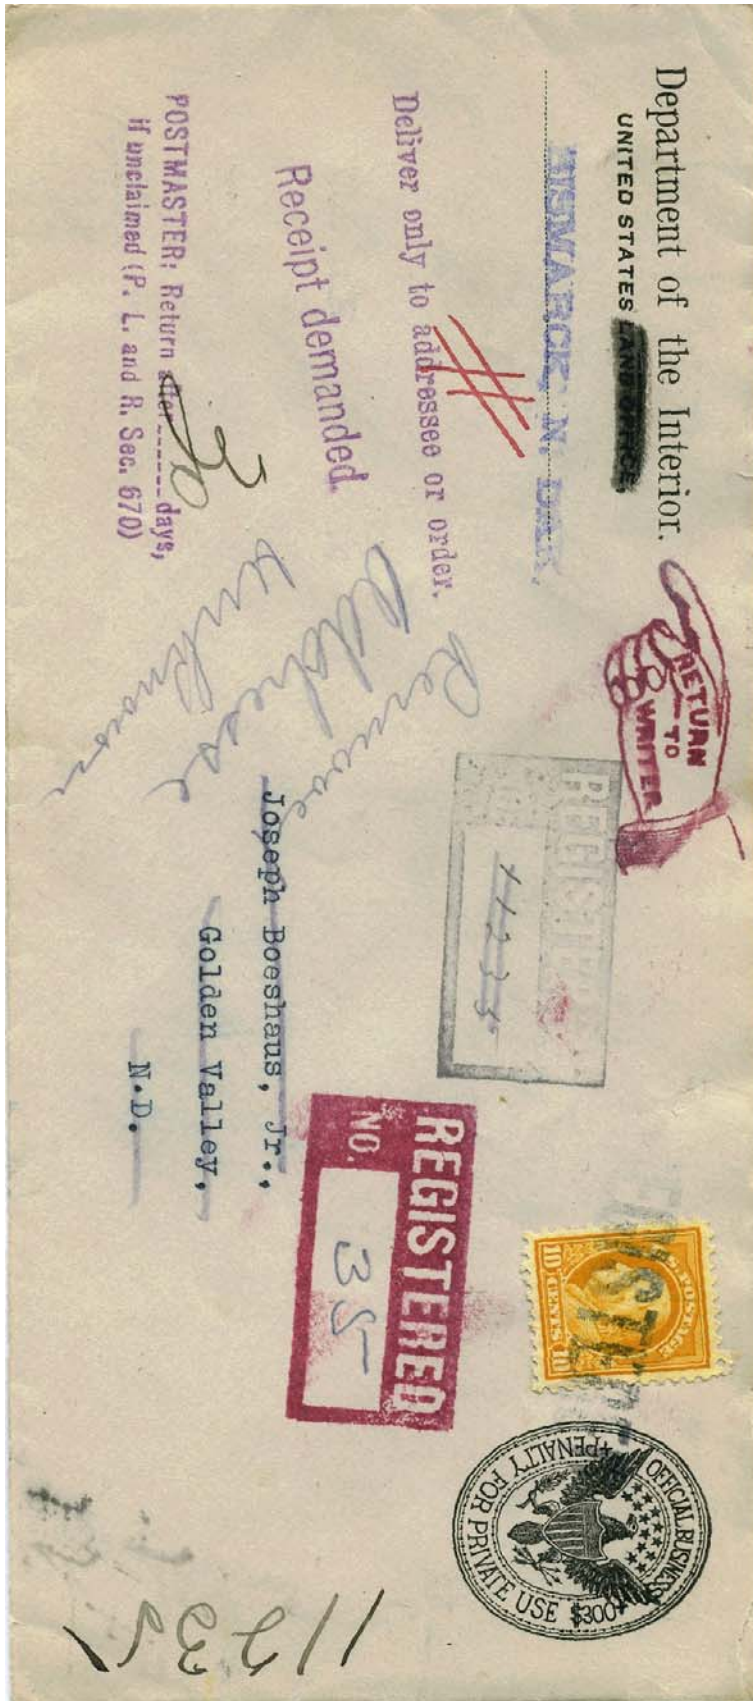 Department of the Interior.
UNITED STATES LAND OFFICE,
BISMARCK, N. DAK.
Deliver only to addressee or order.
Receipt demanded.
POSTMASTER: Return after 30 days,
if unclaimed (P. L. and R. Sec. 670)
RETURN
TO
WRITER
Remove
address
unknown
REGISTERED
11235
Joseph Boeshaus, Jr.,
Golden Valley,
N.D.
REGISTERED
NO. 35
U.S. POSTAGE
10 CENTS 10
OFFICIAL BUSINESS
PENALTY FOR PRIVATE USE $300
11235